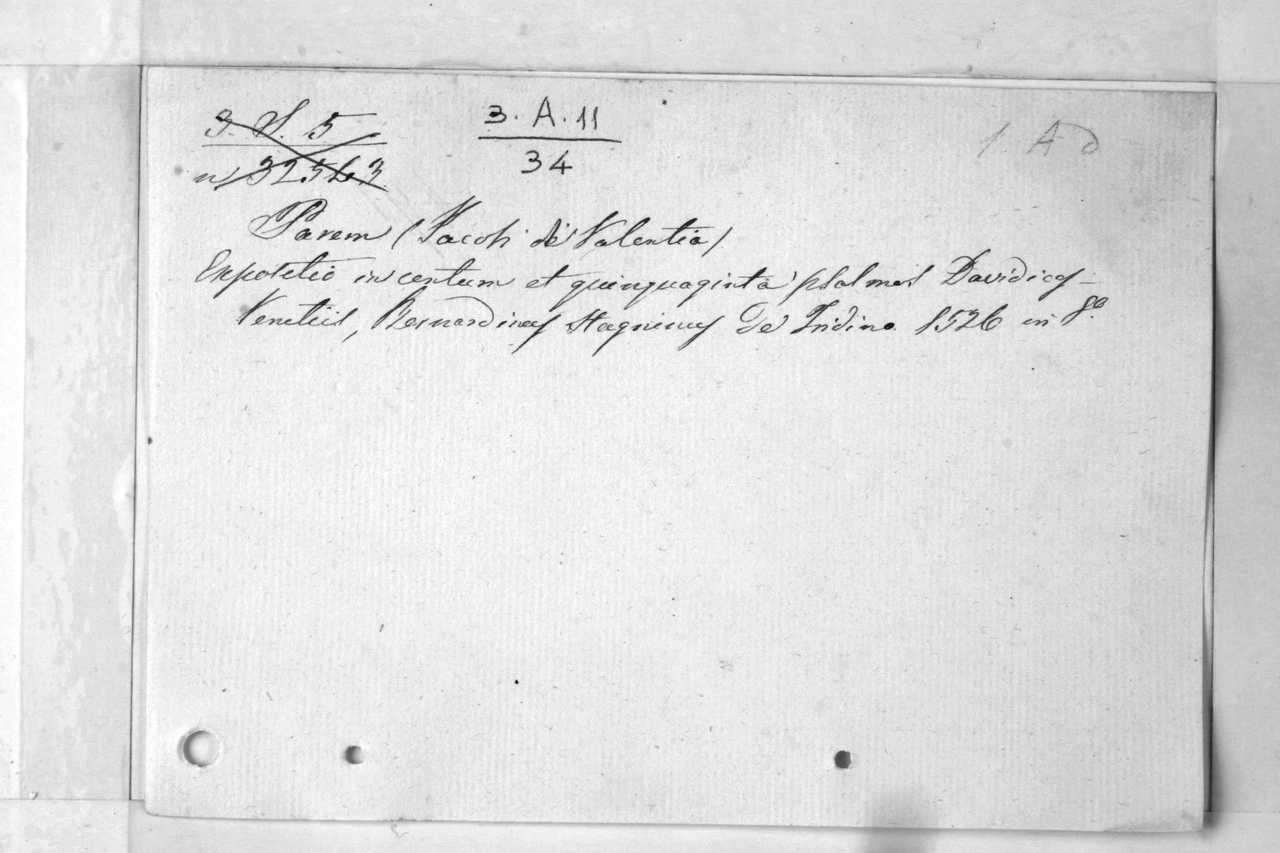 3. S. 5
n 32563
3. A. 11
34
1 A d
Parem (Jacob de Valentia)
Expositio in centum et quinquaginta psalmos Davidicos
Venetiis, Bernardinus Stagninus de Tridino 1526 in 8º